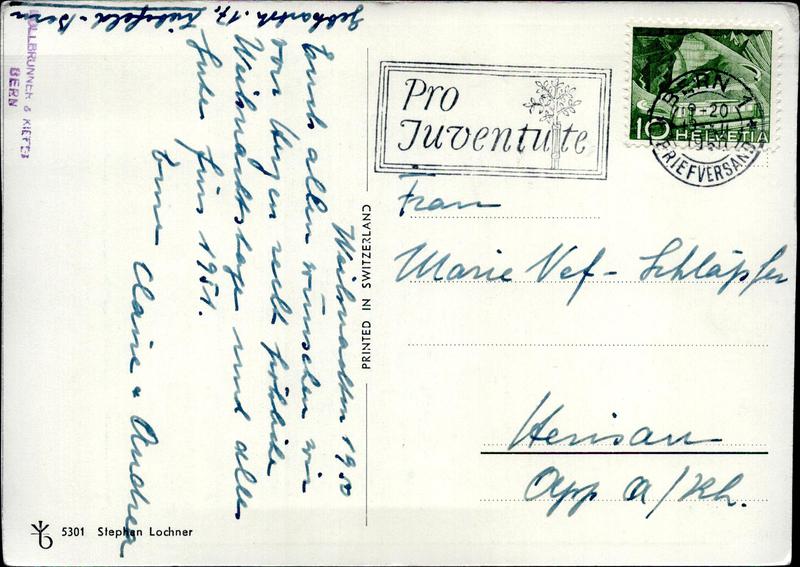 Gebhartstr. 17, Liebefeld-Bern
Weihnachten 1950
Euch allen wünschen wir
von Herzen recht fröhliche
Weihnachtstage und alles
Gute fürs 1951.
Eure Claire & Andrea
KIEFER
BERN
Pro
Juventute
BERN 1
BRIEFVERSAND
10 HELVETIA
Frau
Marie Nef-Schläpfer
Herisau
App a/Rh.
PRINTED IN SWITZERLAND
5301 Stephan Lochner